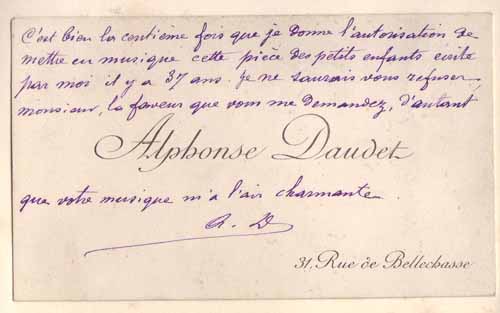 C'est bien la centième fois que je donne l'autorisation de
mettre en musique cette pièce des petits enfants écrite
par moi il y a 37 ans. Je ne saurais vous refuser,
monsieur, la faveur que vous me demandez, d'autant
Alphonse Daudet
que votre musique m'a l'air charmante.
A. D
31, Rue de Bellechasse